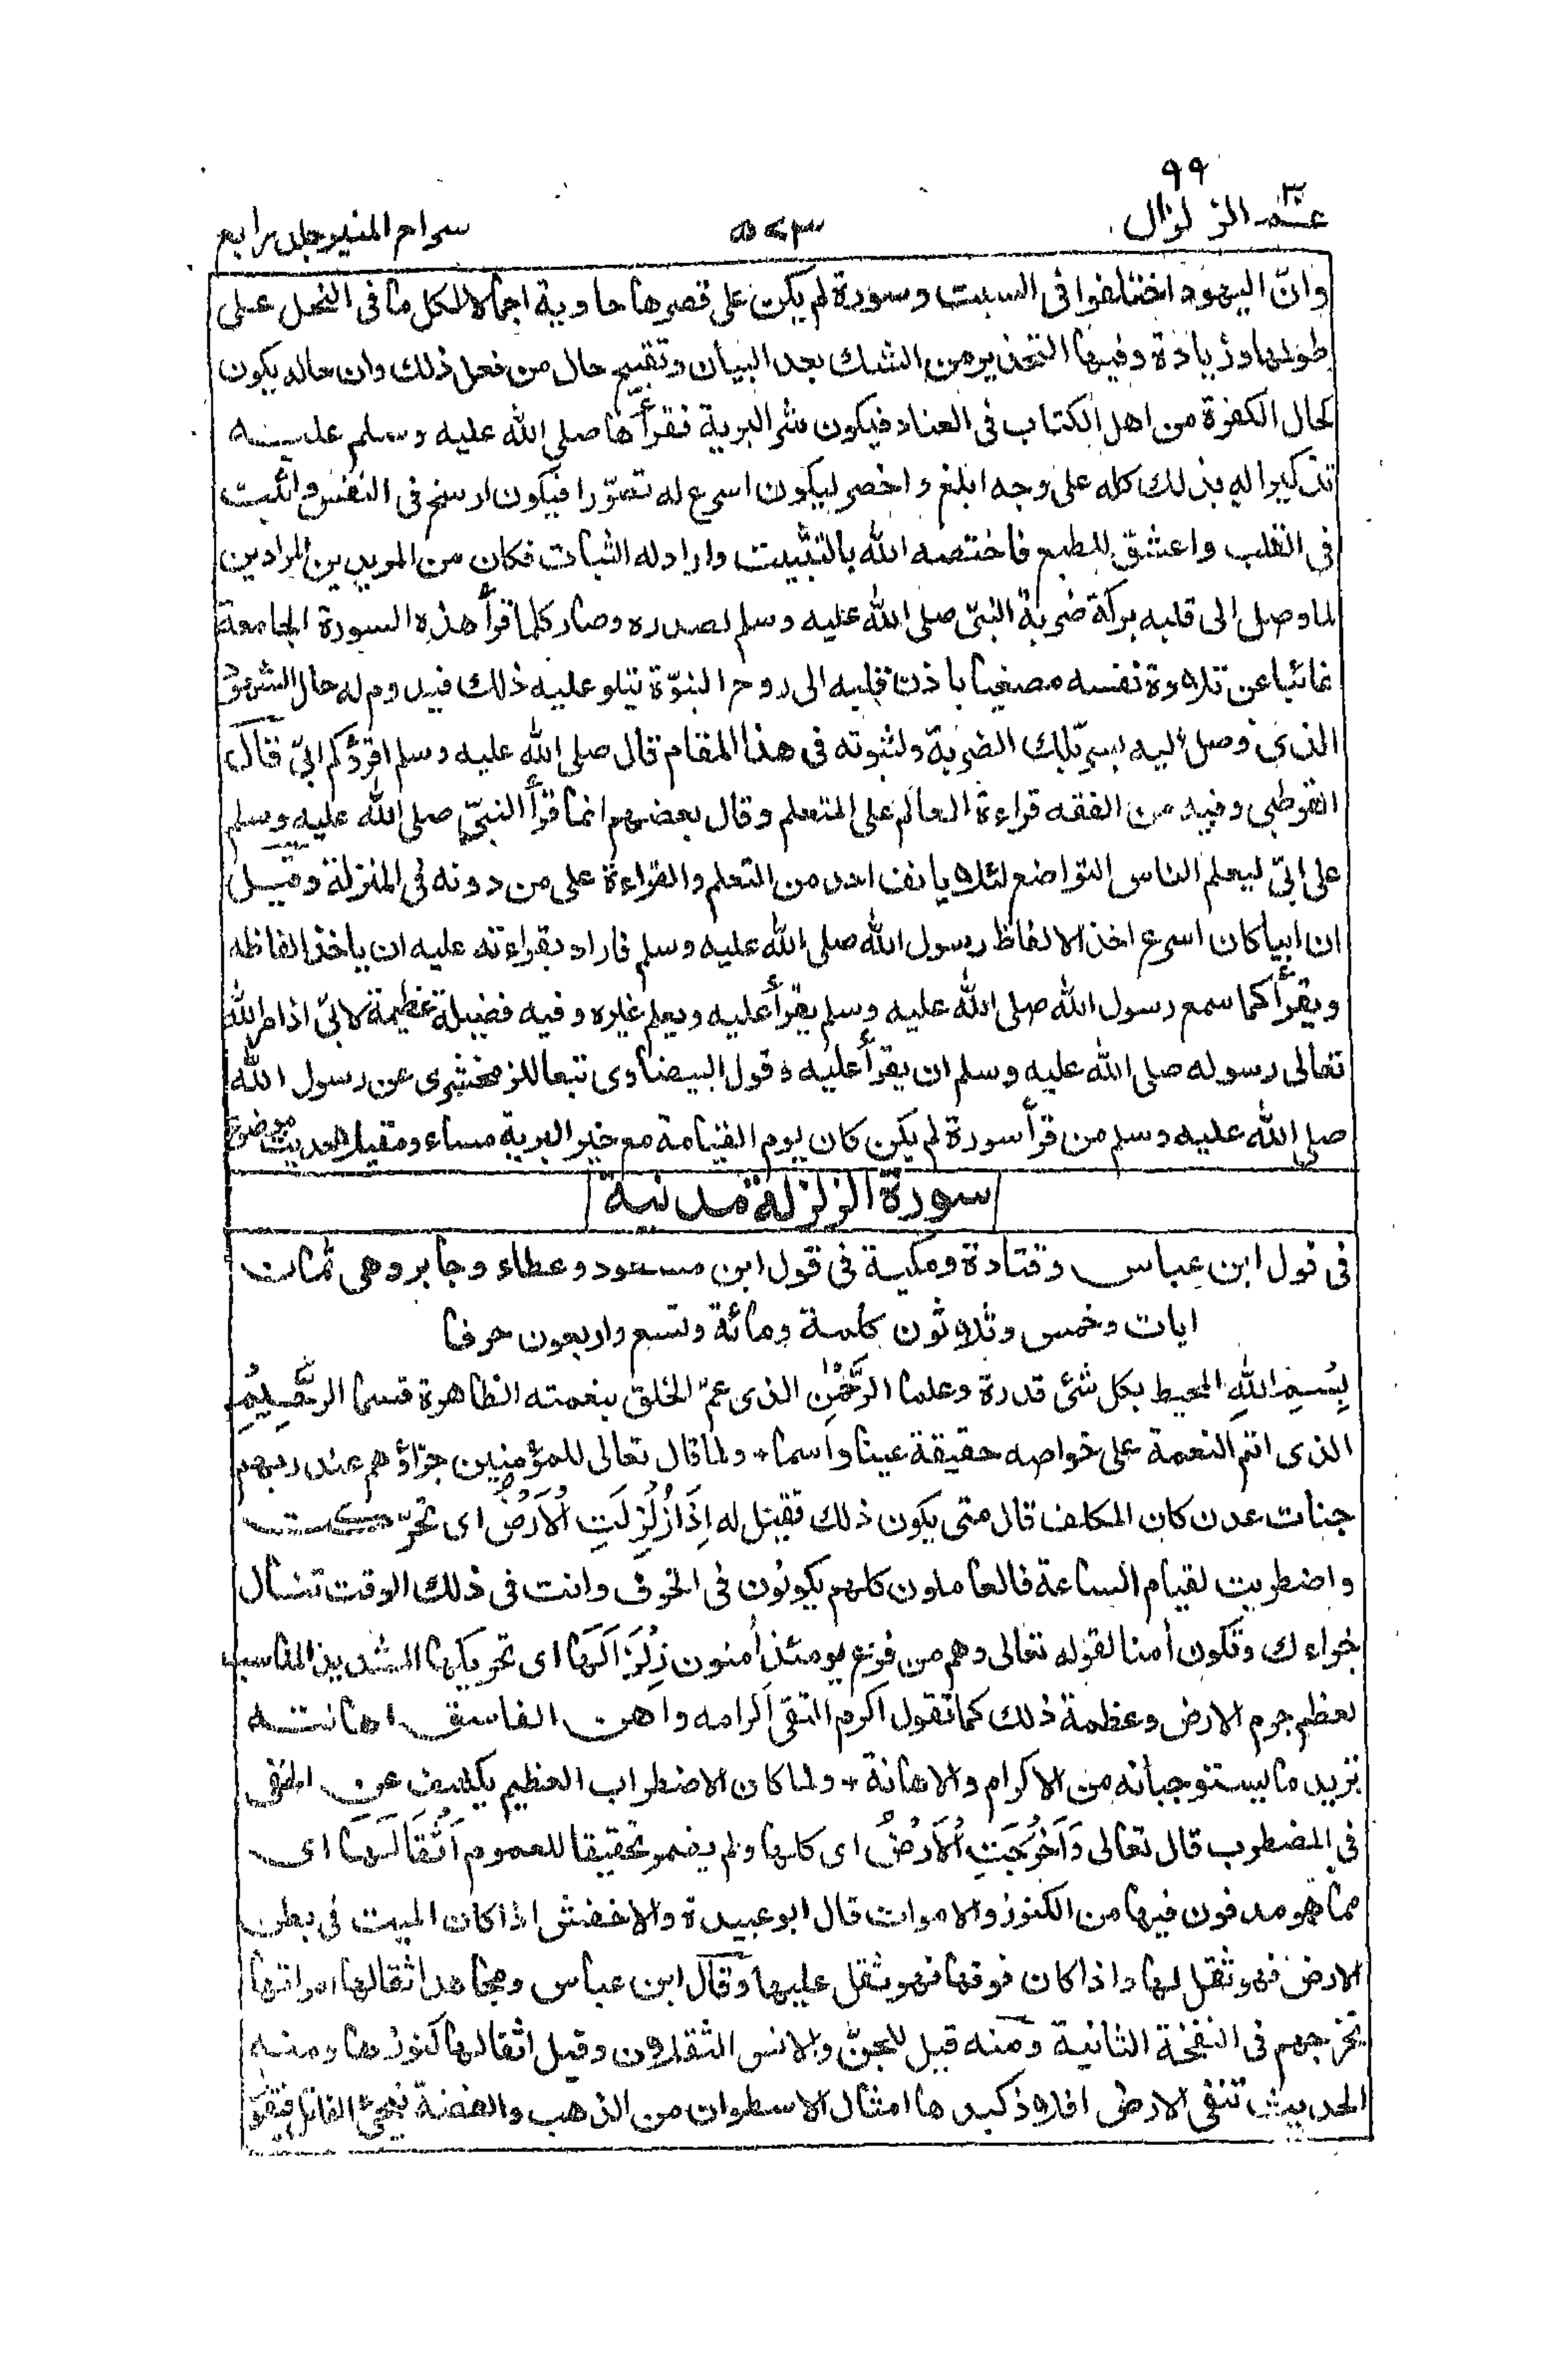 ٩٩
عمّ۳۰ الزلزال
۵۷۳
سراج المنير جلد رابع
وانّ اليهود اختلفوا فى السبت وسورة لم يكن على قصرها حاوية اجمالا لكل ما فى النحل على
طولها وزيادة وفيها التحذير من الشك بعد البيان وتقبيح حال من فعل ذلك وان حاله يكون
كحال الكفرة من اهل الكتاب فى العناد فيكون شر البرية فقرأها صلى الله عليه وسلم عليه
تذكيرا له بذلك كله على وجه ابلغ واخصر ليكون اسرع له تصوّرا فيكون ارسخ فى النفس واثبت
فى القلب واعشق للطبع فاختصه الله بالتثبيت واراد له الثبات فكان من المريدين المرادين
لما وصل الى قلبه بركة ضربة النبىّ صلى الله عليه وسلم لصدره وصار كلما قرأ هذه السورة الجامعة
غائبا عن تلاوة نفسه مصغيا باذن قلبه الى روح النبوّة يتلو عليه ذلك فيدوم له حال الشهود
الذى وصل اليه بسرّ تلك الضربة ولثبوته فى هذا المقام قال صلى الله عليه وسلم اقرؤكم ابىّ قال
القرطبى وفيه من الفقه قراءة العالم على المتعلم وقال بعضهم انما قرأ النبىّ صلى الله عليه وسلم
على ابىّ ليعلم الناس التواضع لئلا يانف احد من التعلم والقراءة على من دونه فى المنزلة وقيل
ان ابيا كان اسرع اخذ الالفاظ رسول الله صلى الله عليه وسلم فاراد بقراءته عليه ان ياخذ الفاظه
ويقرأ كما سمع رسول الله صلى الله عليه وسلم يقرأ عليه ويعلم غيره وفيه فضيلة عظيمة لابىّ اذ امر الله
تعالى رسوله صلى الله عليه وسلم ان يقرأ عليه وقول البيضاوى تبعا للزمخشرى عن رسول الله
صلى الله عليه وسلم من قرأ سورة لم يكن كان يوم القيامة مع خير البرية مساء ومقيلا حديث موضوع
سورة الزلزلة مدنية
فى قول ابن عباس وقتادة ومكية فى قول ابن مسعود وعطاء وجابر وهى ثمان
ايات وخمس وثلاثون كلمة ومائة وتسع واربعون حرفا
بِسْمِ اللهِ المحيط بكل شئ قدرة وعلما الرَّحْمٰنِ الذى عمّ الخلق بنعمته الظاهرة قسما الرَّحِيْمِ
الذى اتم النعمة على خواصه حقيقة عينا واسما، ولما قال تعالى للمؤمنين جزاؤهم عند ربهم
جنات عدن كان المكلف قال متى يكون ذلك فقيل له اِذَا زُلْزِلَتِ الْاَرْضُ اى تحرّكت
واضطربت لقيام الساعة فالعاملون كلهم يكونون فى الخوف وانت فى ذلك الوقت تنال
جزاءك وتكون أمنا لقوله تعالى وهم من فزع يومئذ أمنون زِلْزَالَهَا اى تحريكها الشديد المناسب
لعظم جرم الارض وعظمة ذلك كما تقول اكرم التقى اكرامه واهن الفاسق اهانته
تريد ما يستوجبانه من الاكرام والاهانة، ولما كان الاضطراب العظيم يكشف عن الخفى
فى المضطرب قال تعالى وَاَخْرَجَتِ الْاَرْضُ اى كلها ولم يضمر تحقيقا للعموم اَثْقَالَهَا اى
مما هو مدفون فيها من الكنوز والاموات قال ابو عبيدة والاخفش اذا كان الميت فى بطن
الارض فهو ثقل لها واذا كان فوقها فهو ثقل عليها وقال ابن عباس ومجاهد اثقالها امواتها
تخرجهم فى النفخة الثانية ومنه قيل للجنّ والانس الثقلان وقيل اثقالها كنوزها ومنه
الحديث تنفى الارض افلاذ كبدها امثال الاسطوان من الذهب والفضة فيجئ القاتل فيقول